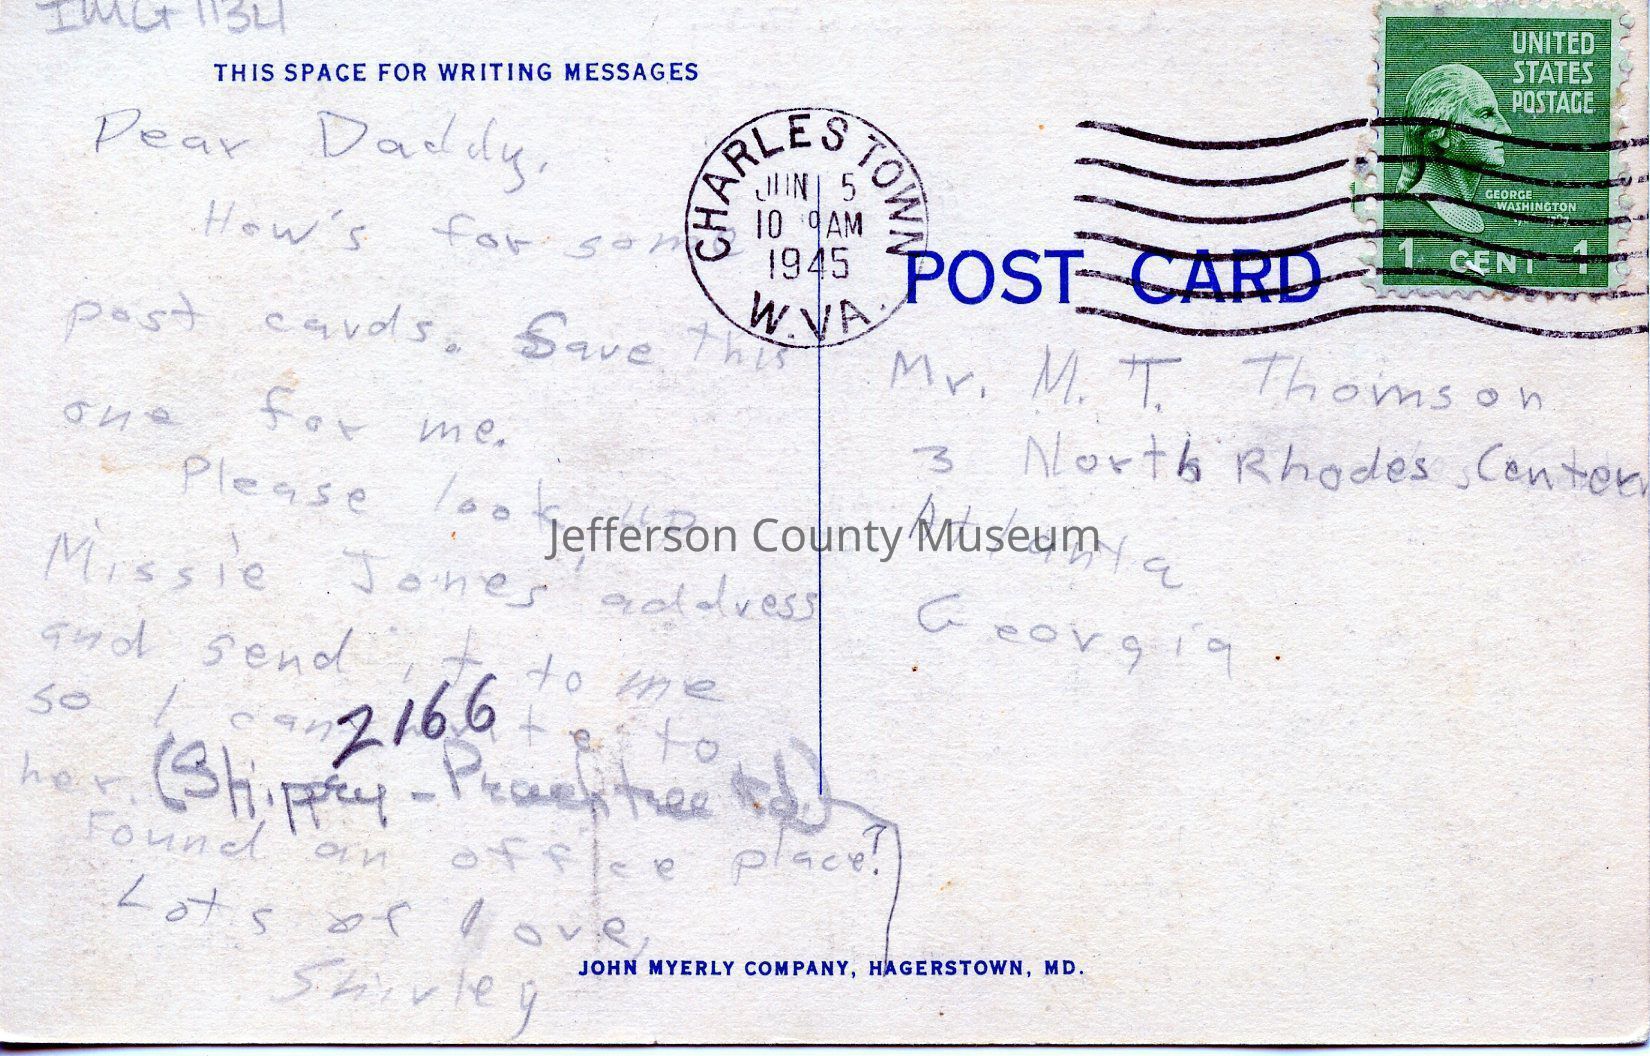 IMG 1134
THIS SPACE FOR WRITING MESSAGES
Dear Daddy,
How's for some
post cards. Save this
one for me.
Please look up
Missie Jones' address
and send it to me
so I can write to
her.
2166
(Shippey - Peachtree Rd.)
Found an office place?
Lots of love,
Shirley
CHARLES TOWN
JUN 5
10 AM
1945
W.VA.
UNITED
STATES
POSTAGE
GEORGE
WASHINGTON
1 CENT 1
POST CARD
Mr. M. T. Thomson
3 North Rhodes Center
Atlanta
Georgia
Jefferson County Museum
JOHN MYERLY COMPANY, HAGERSTOWN, MD.